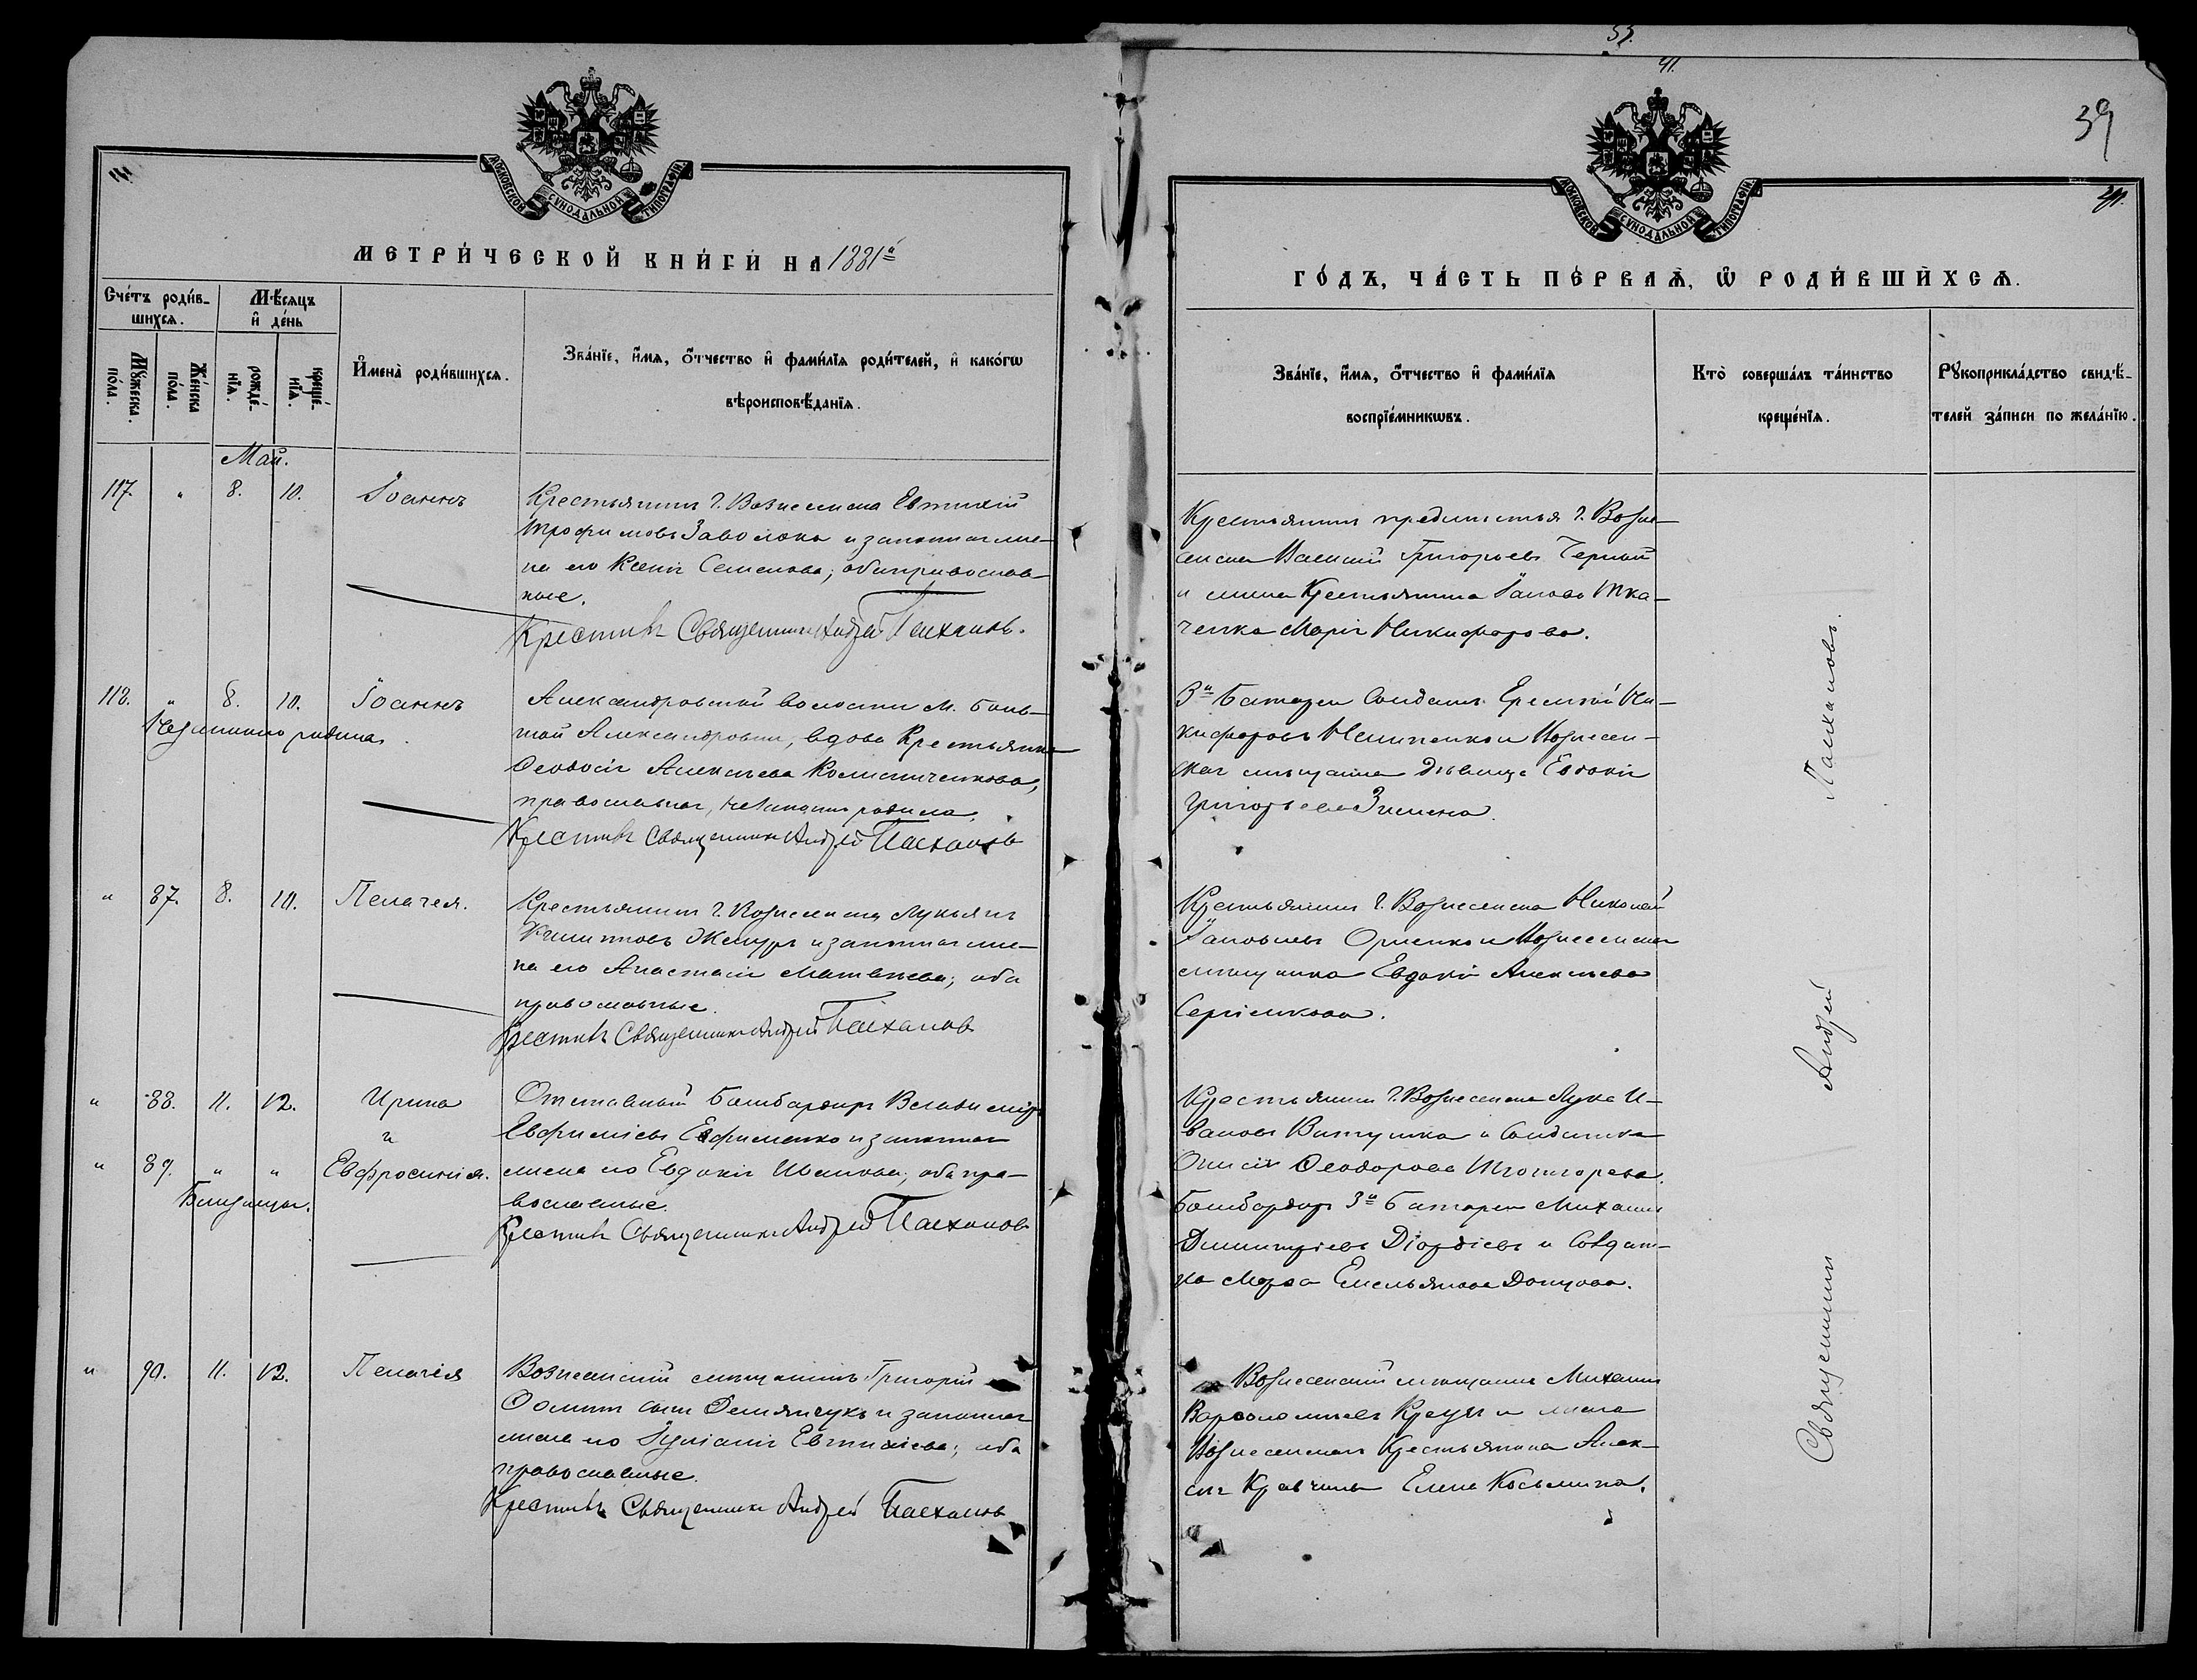 41.
39
МОСКОВСКОЙ СѴНОДАЛЬНОЙ ТИПОГРАФІИ
МЕТРИ́ЧЕСКОЙ КНИ́ГИ НА 1881й
Сче́тъ роди́в-
шихся.
Мѣ́сяцъ
и҆ де́нь
Мꙋ́жеска
по́ла.
Же́нска
по́ла.
рожде́-
нїя.
креще́-
нїя.
И҆мена̀ роди́вшихся.
Зва́нїе, и҆́мя, ѻ҆́тчество и҆ фами́лїя роди́телей, и҆ како́гѡ
вѣроисповѣ́данїя.
Май.
117. " 8. 10. Іоаннъ
Крестьянинъ г. Вознесенска Евтихій
Трофимовъ Заволока и законная же-
на его Ксенія Семенова; оба православ-
ные.
Крестилъ Священникъ Андрей Паехановъ.
118. " 8. 10. Іоаннъ
Незаконно родила.
Александровской волости м. Боль-
шой Александровки, вдова Крестьянка
Феодосія Алексѣева
православная, незаконно родила.
Крестилъ Священникъ Андрей Паехановъ
" 87. 8. 10. Пелагея.
Крестьянинъ г. Вознесенска Лукьянъ
и законная же-
на его Анастасія Матвѣева; оба
православные.
Крестилъ Священникъ Андрей Паехановъ
" 88. 11. 12. Ирина
и
" 89. " " Евфросинія.
Близнецы.
Отставный Бомбардиръ Владиміръ
Евфиміевъ Ефименко и законная
жена его Евдокія Иванова; оба пра-
вославные.
Крестилъ Священникъ Андрей Паехановъ
" 90. 11. 12. Пелагія
Вознесенскій мѣщанинъ Григорій
Фоминъ сынъ Демянчукъ и законная
жена его Іуліанія Евтихіева; оба
православные.
Крестилъ Священникъ Андрей Паехановъ
МОСКОВСКОЙ СѴНОДАЛЬНОЙ ТИПОГРАФІИ
41.
ГО́ДЪ, ЧА́СТЬ ПЕ́РВАѦ, Ѡ҆ РОДИ́ВШИХСѦ.
Зва́нїе, и҆́мя, ѻ҆́тчество и҆ фами́лїя
воспрїе́мникѡвъ.
Кто̀ соверша́лъ та́инство
креще́нїя.
Рꙋкоприкла́дство свидѣ́-
телей за́писи по жела́нїю.
Крестьянинъ предмѣстья г. Возне-
сенска Василій Григорьевъ Черный
и жена Крестьянина Іакова Тка-
ченка Марія Никифорова.
3й Батареи Солдатъ Еремій Ни-
кифоровъ и Вознесен-
ская мѣщанка дѣвица Евдокія
Григорьева Зимина.
Крестьянинъ г. Вознесенска Николай
Іаковлевъ и Вознесенская
мѣщанка Евдокія Алексѣева
Сергіенкова.
Крестьянинъ г. Вознесенска Лука И-
вановъ и Солдатка
Феодорова
Бомбардиръ 3й Батареи Михаилъ
Димитріевъ Діордіевъ и Солдат-
ка Марѳа Емельянова Донцова.
Вознесенскій мѣщанинъ Михаилъ
Варѳоломеевъ и жена
Вознесенскаго Крестьянина Алек-
сія Елена Косьмина.
Священникъ Андрей Паехановъ.